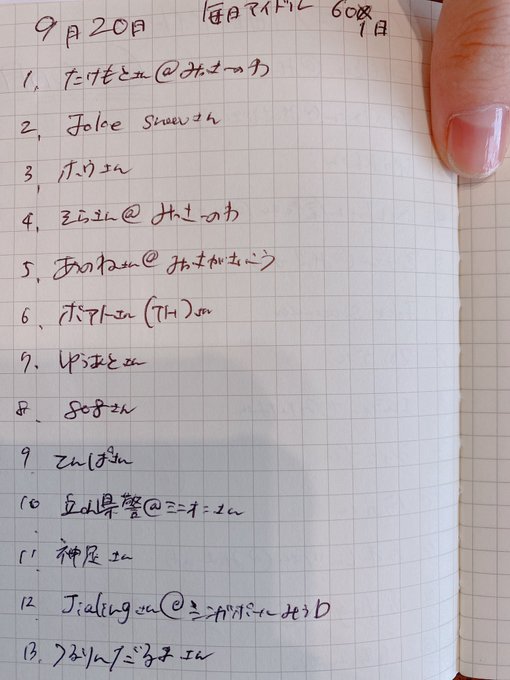 9月20日 毎日アイドル 601日
1. たけもとさん@みっさーのわ
2. Joke Sweeさん
3. ホウさん
4. そらさん@みっさーのわ
5. あのねさん@みっさがきこう
6. ポアトさん(アト)さん
7. ゆうあとさん
8. 808さん
9. てんぱさん
10 県警@ミニオニさん
11. 神足さん
12 Jialingさん@シンガポール
13. さん